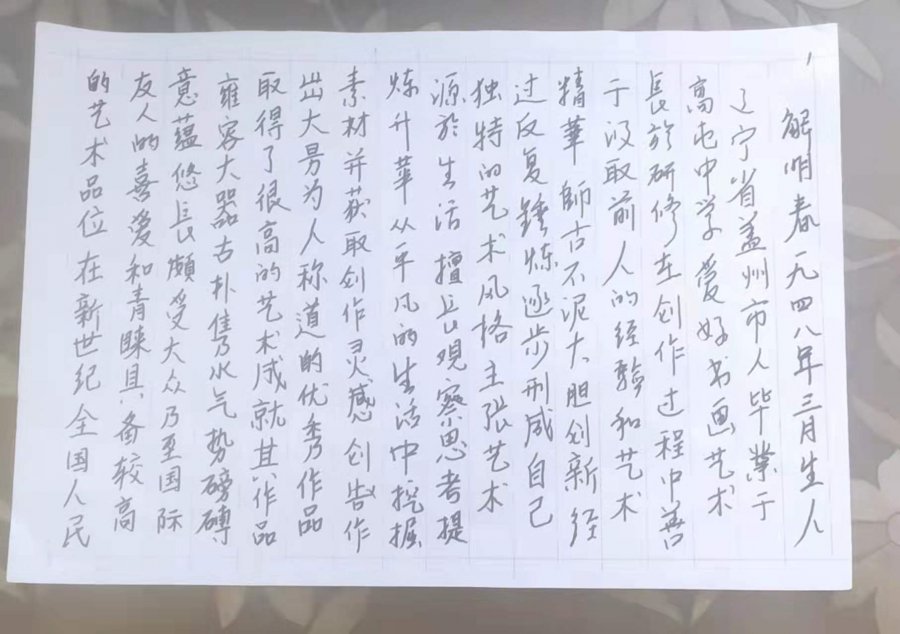 1
解明春一九四八年三月生人
辽宁省盖州市人毕业于
高屯中学爱好书画艺术
長於研修在创作过程中善
于汲取前人的经驗和艺术
精華師古不泥大胆创新经
过反复锤炼逐步形成自己
独特的艺术风格主张艺术
源於生活擅長观察思考提
炼升華从平凡的生活中挖掘
素材并获取创作灵感创告作
出大量为人称道的优秀作品
取得了很高的艺术成就其作品
雍容大器古朴隽永气势磅礴
意蕴悠長颇受大众乃至国际
友人的喜爱和青睐具备较高
的艺术品位在新世纪全国人民